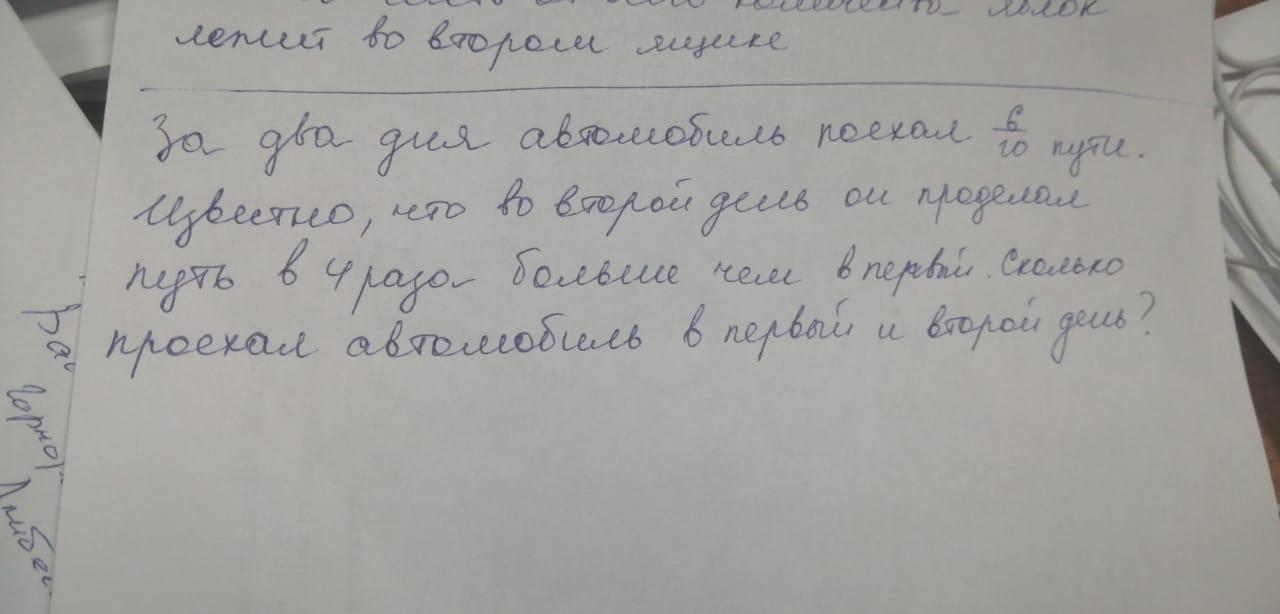 яблок
лежит во втором ящике
За два дня автомобиль поехал 6/10 пути.
Известно, что во второй день он проделал
путь в 4 раза больше чем в первый. Сколько
проехал автомобиль в первый и второй день?